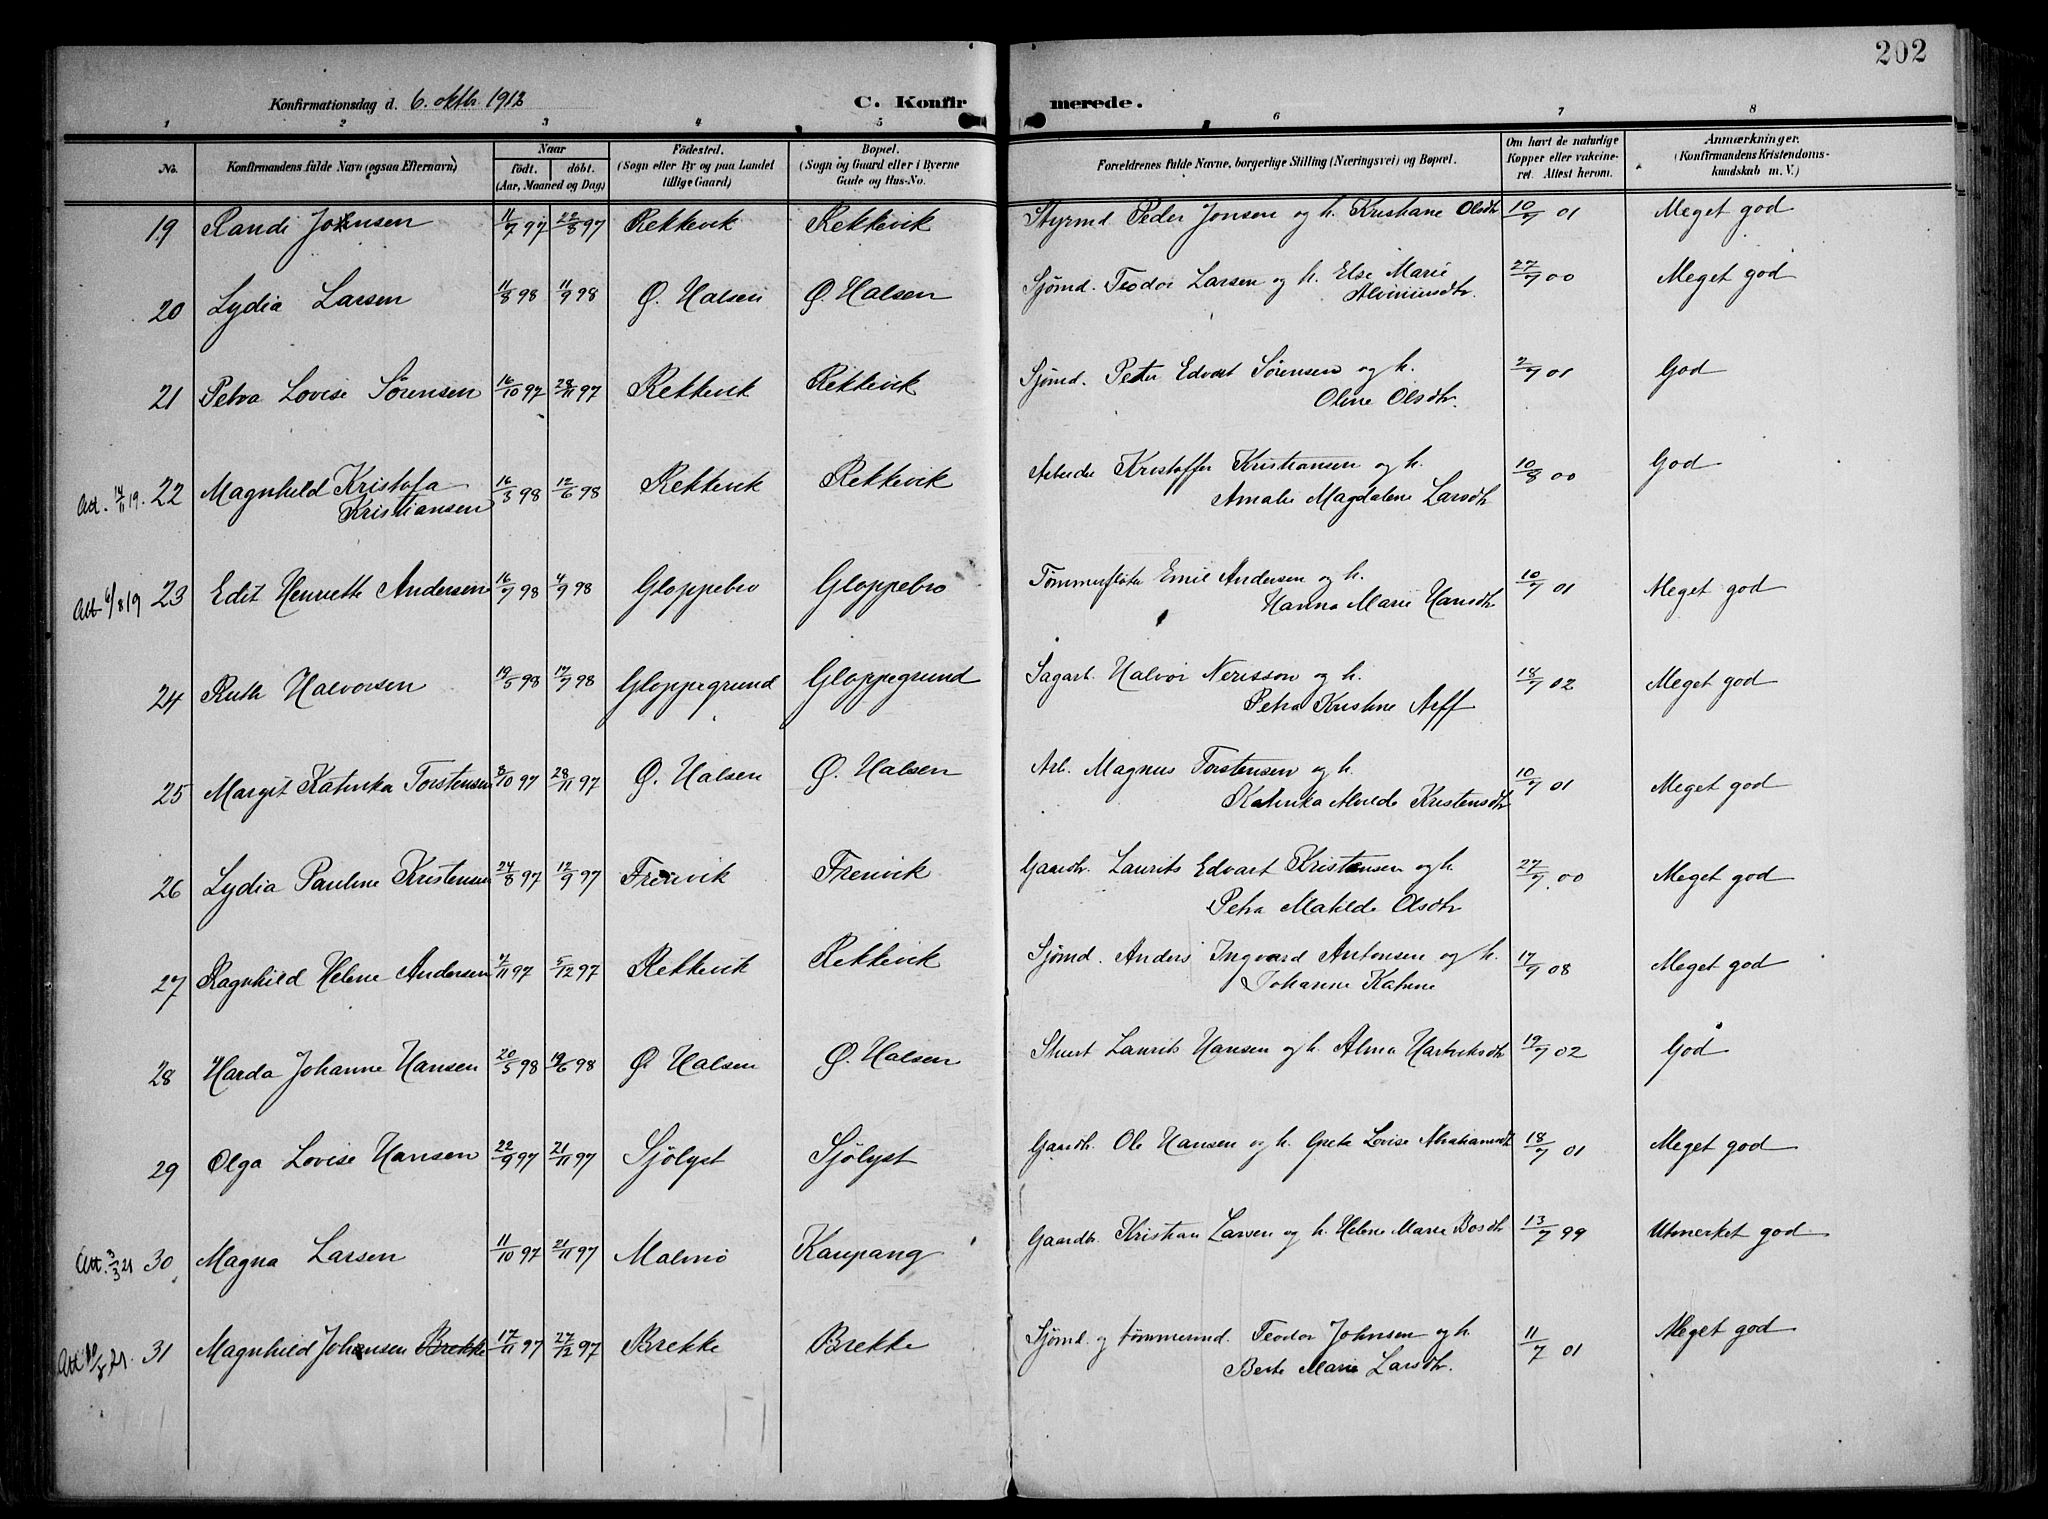 202
Konfirmationsdag d. 6. oktb. 1912
C. Konfirmerede.
1 2 3 4 5 6 7 8
No. Konfirmandens fulde Navn (ogsaa Efternavn) Naar født. døbt. (Aar, Maaned og Dag) Fødested. (Sogn eller By og paa Landet tillige Gaard) Bopæl. (Sogn og Gaard eller i Byerne Gade og Hus-No. Forældrenes fulde Navne, borgerlige Stilling (Næringsvei) og Bopæl. Om havt de naturlige Kopper eller vaksineret. Attest herom. Anmærkninger. (Konfirmandens Kristendomskundskab m. V.)
19 Randi Johnsen 11/7 97 22/8 97 Rekkevik Rekkevik Styrmd. Peder Jonsen og h. Kristiane Olsdtr 10/7 01 Meget god
20 Lydia Larsen 11/8 98 11/9 98 Ø. Halsen Ø. Halsen Sjømd. Teodor Larsen og h. Else Marie 27/7 00 Meget god
Alvinusdtr.
21 Petra Lovise Sörensen 16/10 97 28/11 97 Rekkevik Rekkevik Sjømd. Peter Edvart Sørensen og h. 2/7 01 God
Oline Olsdtr.
Att. 14/11 19. 22 Magnhild Kristofa 16/3 98 12/6 98 Rekkevik Rekkevik Arbeider Kristoffer Kristiansen og h. 10/8 00 God
Kristiansen Amalie Magdalene Larsdtr
Att 6/8 19 23 Edit Henriette Andersen 16/7 98 4/9 98 Gloppebro Gloppebro Tømmerfløter Emil Andersen og h. 10/7 01 Meget god
Hanna Marie Hansdtr
24 Ruth Halvorsen 19/5 98 17/7 98 Gloppegrund Gloppegrund Sagarb. Halvor Nerisson og h. 18/7 02 Meget god
Petra Kristine Arff
25 Margit Katinka Torstensen 8/10 97 28/11 97 Ø. Halsen Ø. Halsen Arb. Magnus Torstensen og h. 10/7 01 Meget god
Katinka Alvilde Kristensdtr
26 Lydia Pauline Kristensen 24/8 97 12/9 97 Frenvik Frenvik Gaardbr. Laurits Edvart Kristensen og h. 27/7 00 Meget god
Petra Matilde Olsdtr
27 Ragnhild Helene Andersen 4/11 97 5/12 97 Rekkevik Rekkevik Sjømd. Anders Ingvard Antonsen og h. 17/9 08 Meget god
Johanne Katrine
28 Harda Johanne Hansen 20/5 98 19/6 98 Ø. Halsen Ø. Halsen Stuert Laurits Hansen og h. Alma Hartviksdtr 19/7 02 God
29 Olga Lovise Hansen 22/9 97 21/11 97 Sjölyst Sjölyst Gaardbr. Ole Hansen og h. Greta Lovise Abrahamsdtr 18/7 01 Meget god
Att. 3/3 21 30 Magna Larsen 11/10 97 21/11 97 Malmö Kaupang Gaardbr. Kristian Larsen og h. Helene Marie Bosdtr 13/7 99 Utmerket god
Att 21. 31 Magnhild Johnsen Brekke 17/11 97 27/12 97 Brekke Brekke Sjømd. og tømmermd. Teodor Johnsen og h. 11/7 01 Meget god
Berte Marie Larsdtr.